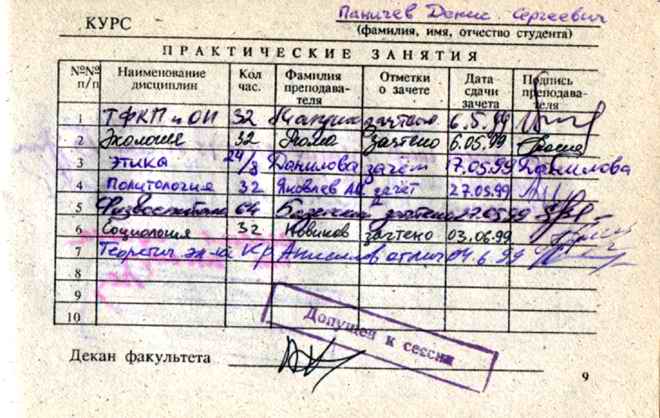 КУРС Паничев Денис Сергеевич
(фамилия, имя, отчество студента)
ПРАКТИЧЕСКИЕ ЗАНЯТИЯ
№№ п/п Наименование дисциплин Кол час. Фамилия преподавателя Отметки о зачете Дата сдачи зачета Подпись преподавателя
1 ТФКП и ОИ 32 зачтено 6.5.99
2 Экология 32 зачтено 6.05.99
3 этика 24/8 Данилова зачёт 17.05.99 Данилова
4 Политология 32 Яковлев зачет 27.05.99
5 64 зачтено 27.05.99
6 Социология 32 Новиков зачтено 03.06.99
7 Теоретич. эл-ка КР Анисимов отлич 04.6.99
8
9
10
Допущен к сессии
Декан факультета
9